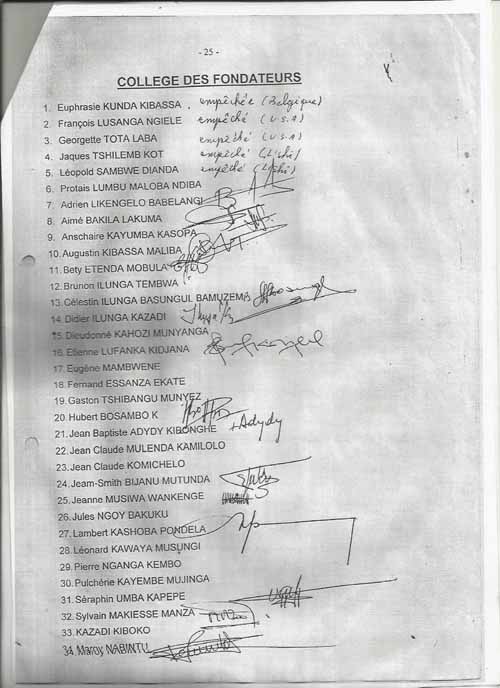 - 25 -
COLLEGE DES FONDATEURS
1. Euphrasie KUNDA KIBASSA, empêchée (Belgique)
2 François LUSANGA NGIELE empêché (U.S.A)
3. Georgette TOTA LABA empêché (U.S.A)
4. Jaques TSHILEMB KOT empêché (L'shi)
5. Léopold SAMBWE DIANDA empêché (L'shi)
6. Protais LUMBU MALOBA NDIBA
7. Adrien LIKENGELO BABELANGI
8. Aimé BAKILA LAKUMA
9. Anschaire KAYUMBA KASOPA
10. Augustin KIBASSA MALIBA
11. Bety ETENDA MOBULA
12. Brunon ILUNGA TEMBWA
13. Célestin ILUNGA BASUNGUL BAMUZEMB
14. Didier ILUNGA KAZADI
15. Dieudonné KAHOZI MUNYANGA
16. Etienne LUFANKA KIDJANA
17. Eugène MAMBWENE
18. Fernand ESSANZA EKATE
19. Gaston TSHIBANGU MUNYEZ
20. Hubert BOSAMBO K
21. Jean Baptiste ADYDY KIBONGHE + Adydy
22. Jean Claude MULENDA KAMILOLO
23. Jean Claude KOMICHELO
24. Jeam-Smith BIJANU MUTUNDA
25. Jeanne MUSIWA WANKENGE
26. Jules NGOY BAKUKU
27. Lambert KASHOBA PONDELA
28. Léonard KAWAYA MUSUNGI
29. Pierre NGANGA KEMBO
30. Pulchérie KAYEMBE MUJINGA
31. Séraphin UMBA KAPEPE
32. Sylvain MAKIESSE MANZA
33. KAZADI KIBOKO
34. Maroy NABINTU